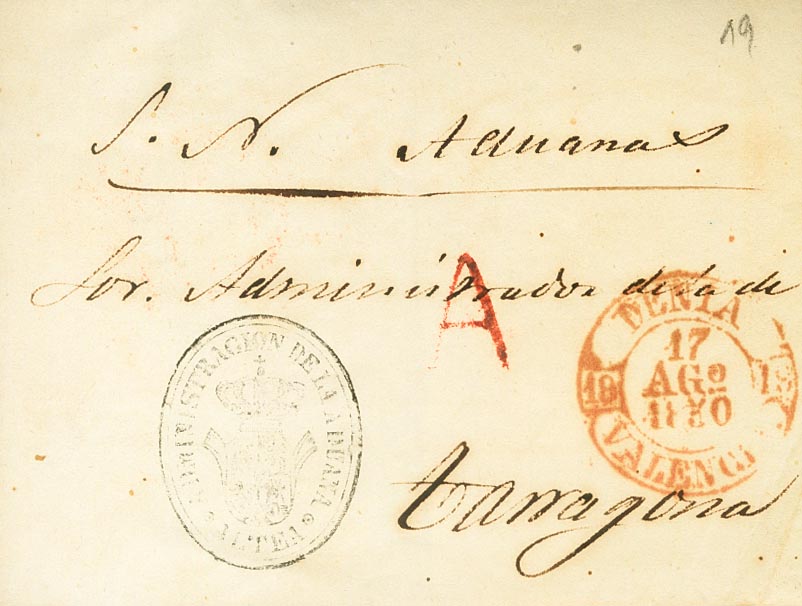 19
S. N. Aduanas
Sor. Administrador de la de
A
DENIA
17
AGO
1850
18 19
VALENCIA
ADMINISTRACION DE LA ADUANA
ALTEA
Tarragona